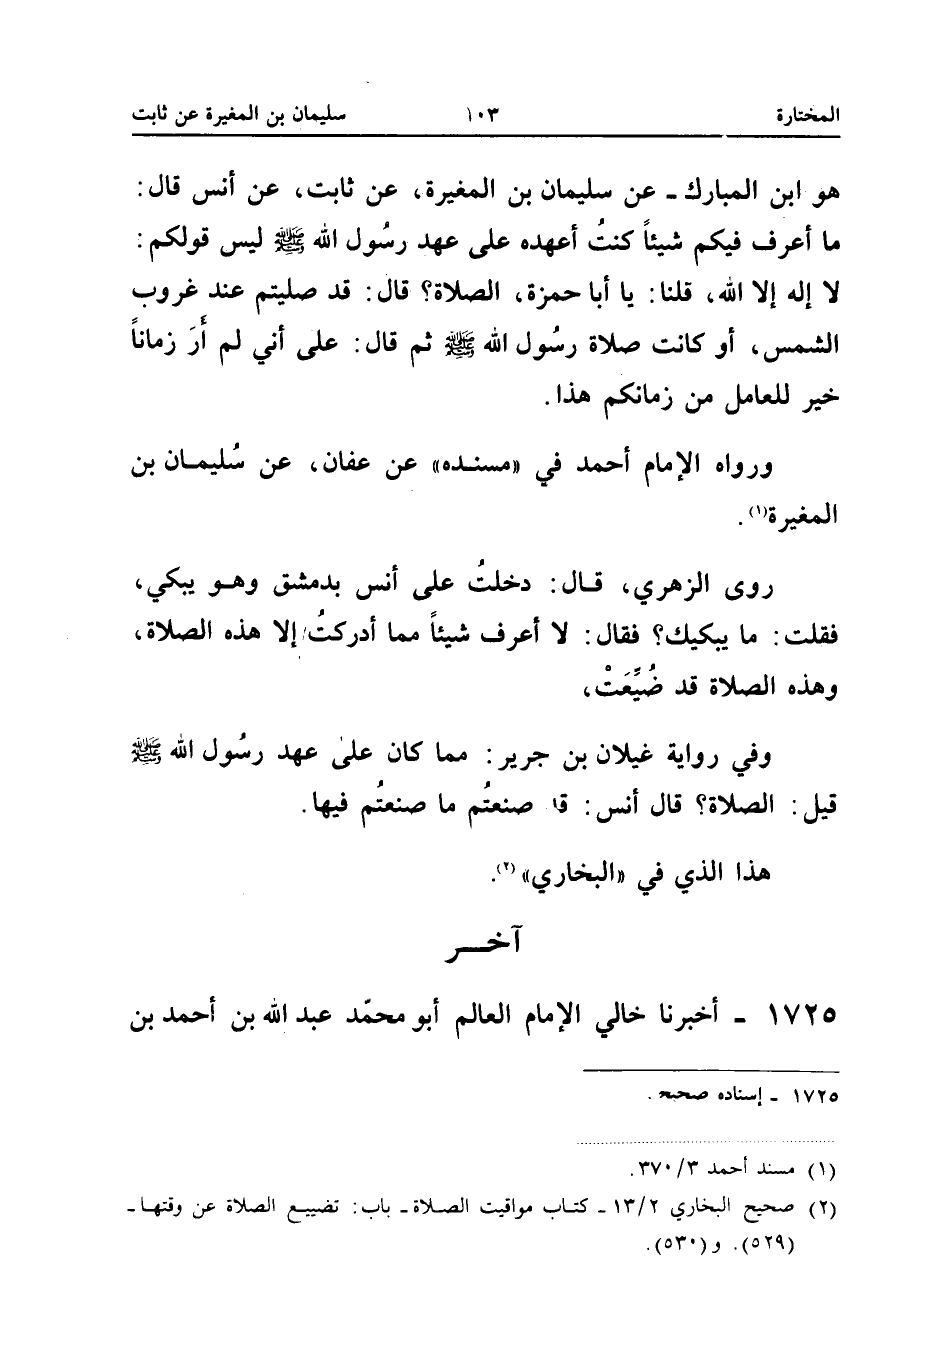 المختارة ١٠٣ سليمان بن المغيرة عن ثابت
هو ابن المبارك ـ عن سليمان بن المغيرة، عن ثابت، عن أنس قال:
ما أعرف فيكم شيئاً كنتُ أعهده على عهد رسُول الله ﷺ ليس قولكم:
لا إله إلا الله، قلنا: يا أبا حمزة، الصلاة؟ قال: قد صليتم عند غروب
الشمس، أو كانت صلاة رسُول الله ﷺ ثم قال: على أني لم أَرَ زماناً
خير للعامل من زمانكم هذا.
ورواه الإمام أحمد في «مسنده» عن عفان، عن سُليمان بن
المغيرة(١).
روى الزهري، قال: دخلتُ على أنس بدمشق وهو يبكي،
فقلت: ما يبكيك؟ فقال: لا أعرف شيئاً مما أدركتُ إلا هذه الصلاة،
وهذه الصلاة قد ضُيِّعَتْ،
وفي رواية غيلان بن جرير: مما كان على عهد رسُول الله ﷺ
قيل: الصلاة؟ قال أنس: صنعتُم ما صنعتُم فيها.
هذا الذي في «البخاري»(٢).
آخـــر
١٧٢٥ ـ أخبرنا خالي الإمام العالم أبو محمّد عبد الله بن أحمد بن
١٧٢٥ ـ إسناده صحيح.
(١) مسند أحمد ٣/ ٣٧٠.
(٢) صحيح البخاري ٢/ ١٣ ـ كتاب مواقيت الصلاة ـ باب: تضييع الصلاة عن وقتها ـ
(٥٢٩). و(٥٣٠).